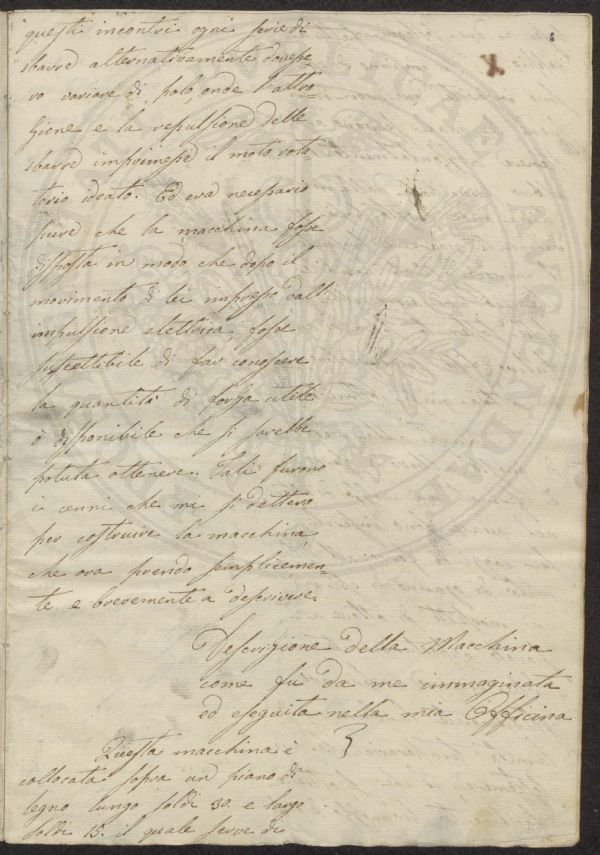 questi incontri ogni serie di
sbarre alternativamente dovesse
ro variare di polo, onde l'attra-
zione e la repulsione delle
sbarre imprimesse il moto rota
torio ideato. Ed era necessario
pure che la macchina fosse
disposta in modo, che dopo il
movimento di lei impresso dall'
impulsione elettrica, fosse
suscettibile di far conoscere
la quantità di forza utile
o disponibile che si sarebbe
potuta ottenere. Tali furono
i cenni che mi si dettero
per costruire la macchina,
che ora prendo semplicemen-
te, e brevemente a descrivere.
Descrizione della Macchina
come fù da me immaginata
ed eseguita nella mia Officina
Questa macchina è
collocata sopra un piano di
legno lungo soldi 30. e largo
soldi 15. il quale serve di